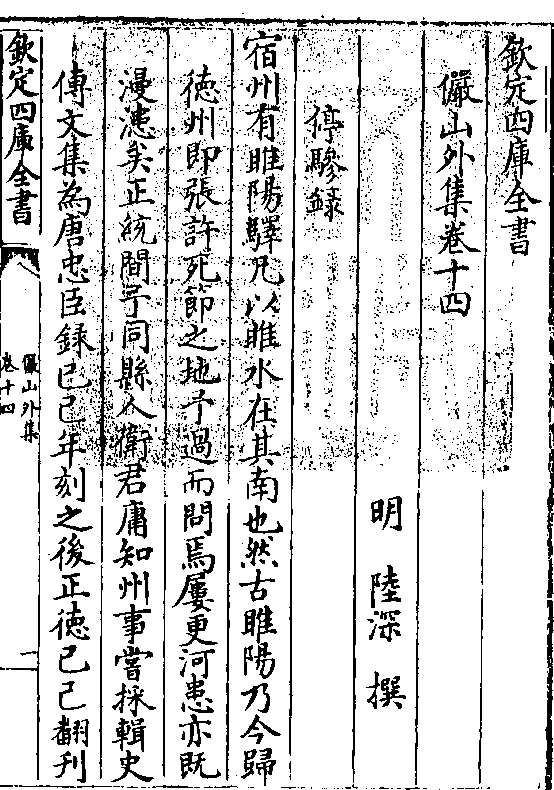 欽定四庫全書
儼山外集卷十四
明 陸深 撰
停驂録
宿州有睢陽驛凡以睢水在其南也然古睢陽乃今歸
徳州即張許死節之地予過而問焉屢更河患亦既
漫漶矣正統間予同縣人衛君庸知州事嘗採輯史
傳文集為唐忠臣録己巳年刻之後正徳己巳翻刋
欽定四庫全書
儼山外集
卷十四
一